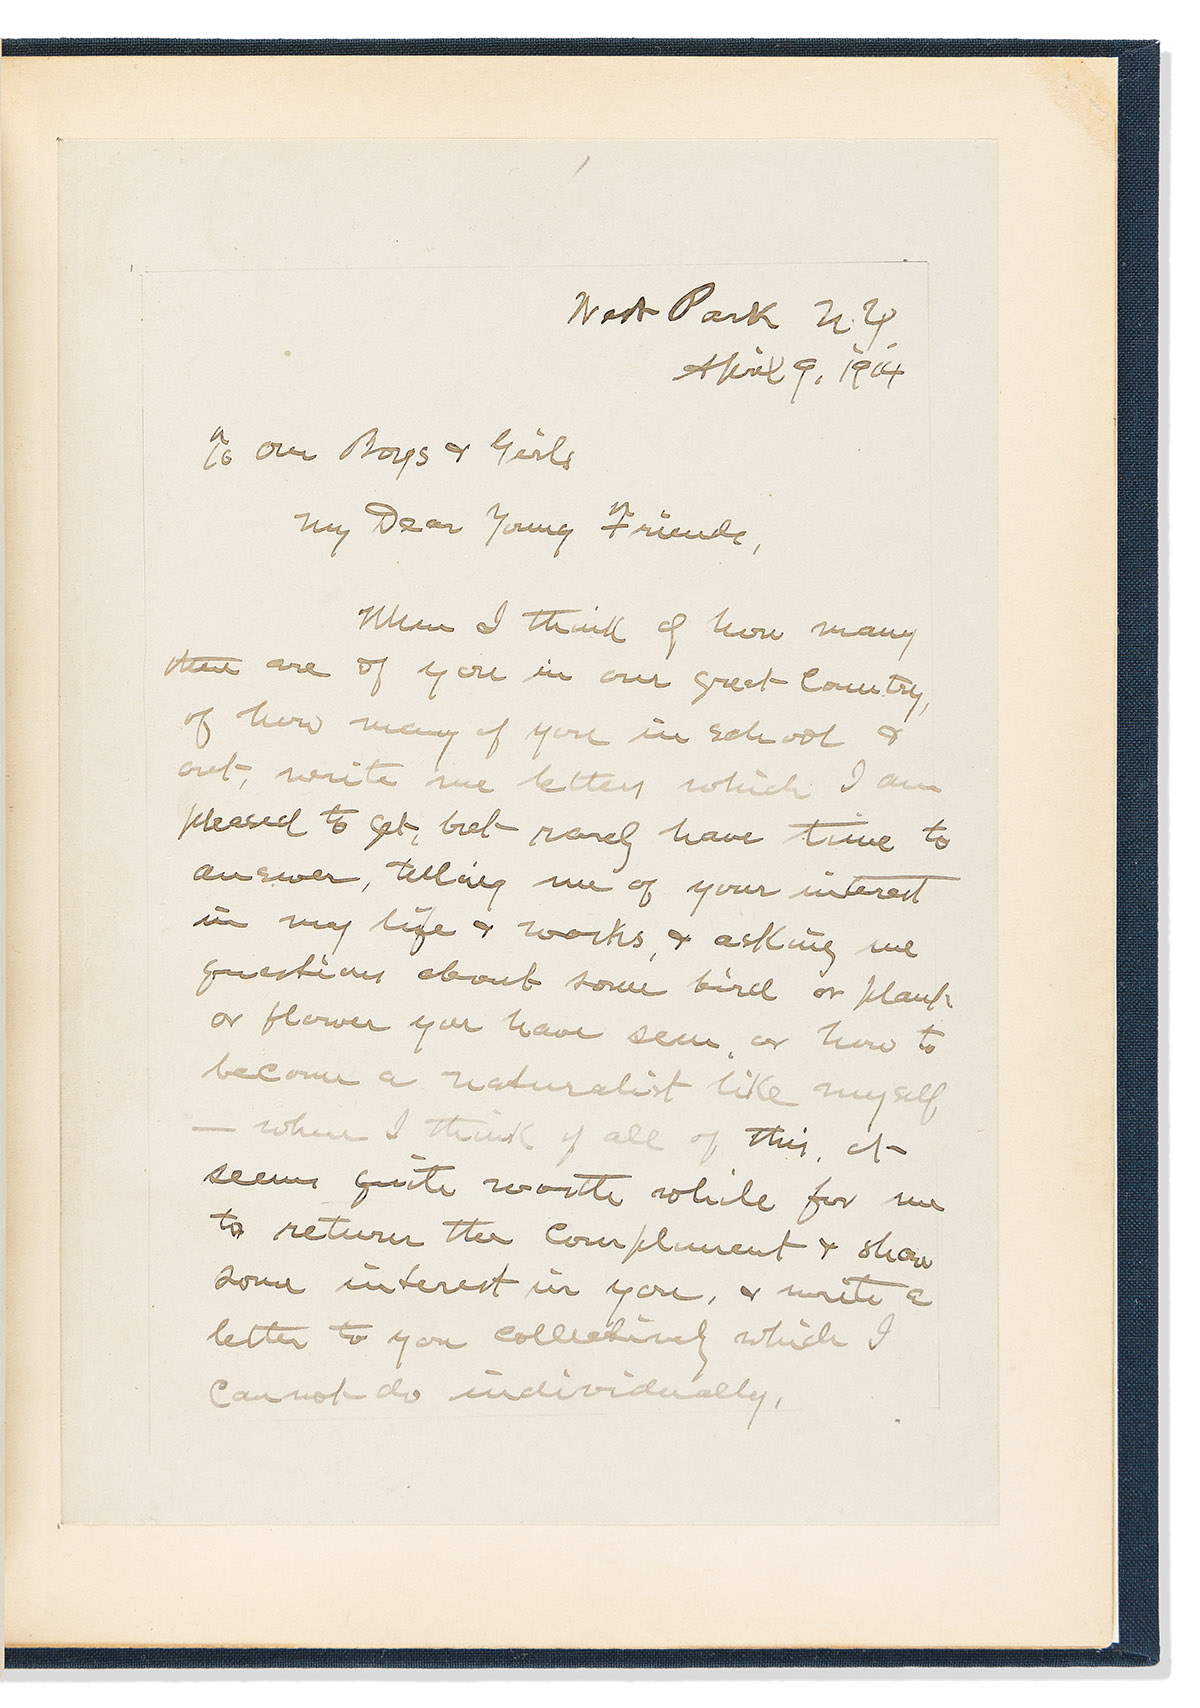 West Park N.Y.
April 9, 1914
To Our Boys & Girls
My Dear Young Friends,
When I think of how many
there are of you in our great Country,
of how many of you in school &
out, write me letters which I am
pleased to get, but rarely have time to
answer, telling me of your interest
in my life & works, & asking me
questions about some bird or plant
or flower you have seen, or how to
become a naturalist like myself
— when I think of all of this, it
seems quite worth while for me
to return the compliment & show
some interest in you, & write a
letter to you collectively which I
cannot do individually.